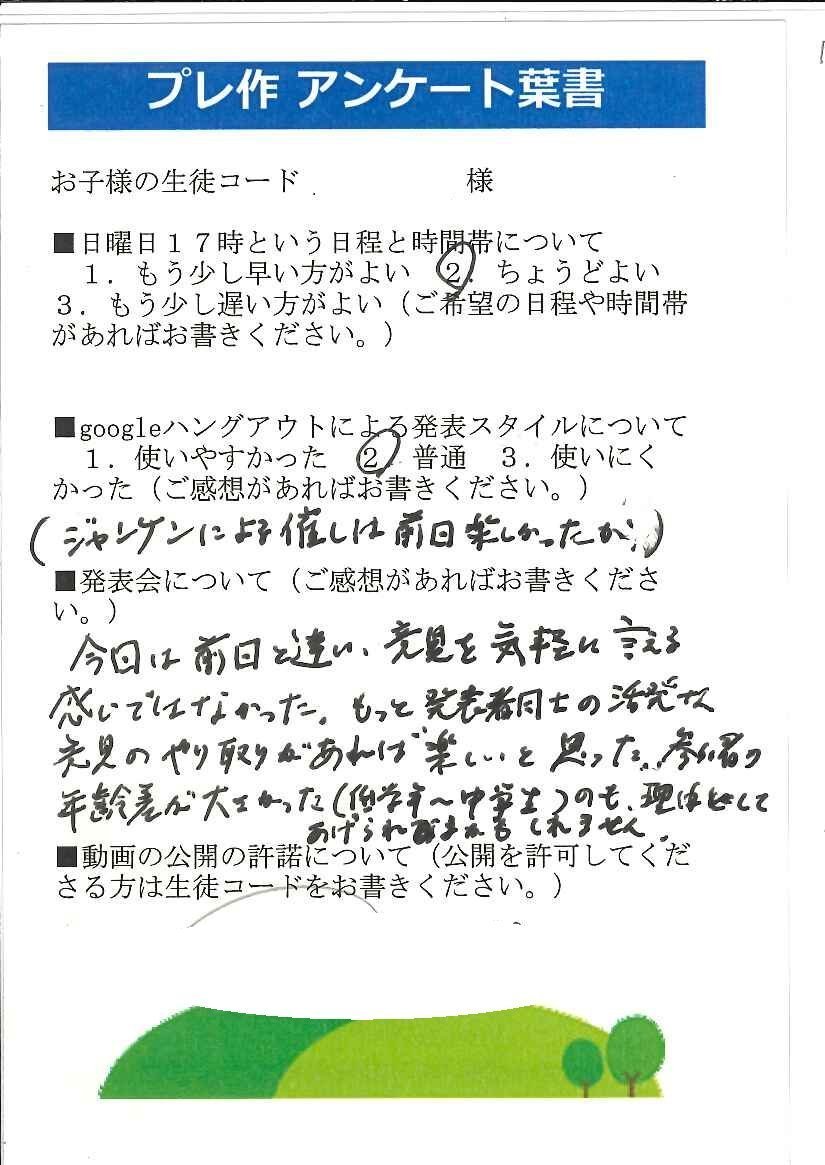 プレ作 アンケート葉書
お子様の生徒コード 様
■日曜日１７時という日程と時間帯について
１．もう少し早い方がよい ２．ちょうどよい
３．もう少し遅い方がよい（ご希望の日程や時間帯
があればお書きください。）
■googleハングアウトによる発表スタイルについて
１．使いやすかった ２．普通 ３．使いにく
かった（ご感想があればお書きください。）
(ジャンケンによる催しは前日楽しかったが、)
■発表会について（ご感想があればお書きくださ
い。）
今回は前日と違い、意見を気軽に言える
感じではなかった。もっと発表者同士の活発な
意見のやり取りがあれば楽しいと思った。参加者の
年齢差が大きかった(低学年～中学生)のも、理由として
あげられるかもしれません。
■動画の公開の許諾について（公開を許可してくだ
さる方は生徒コードをお書きください。）